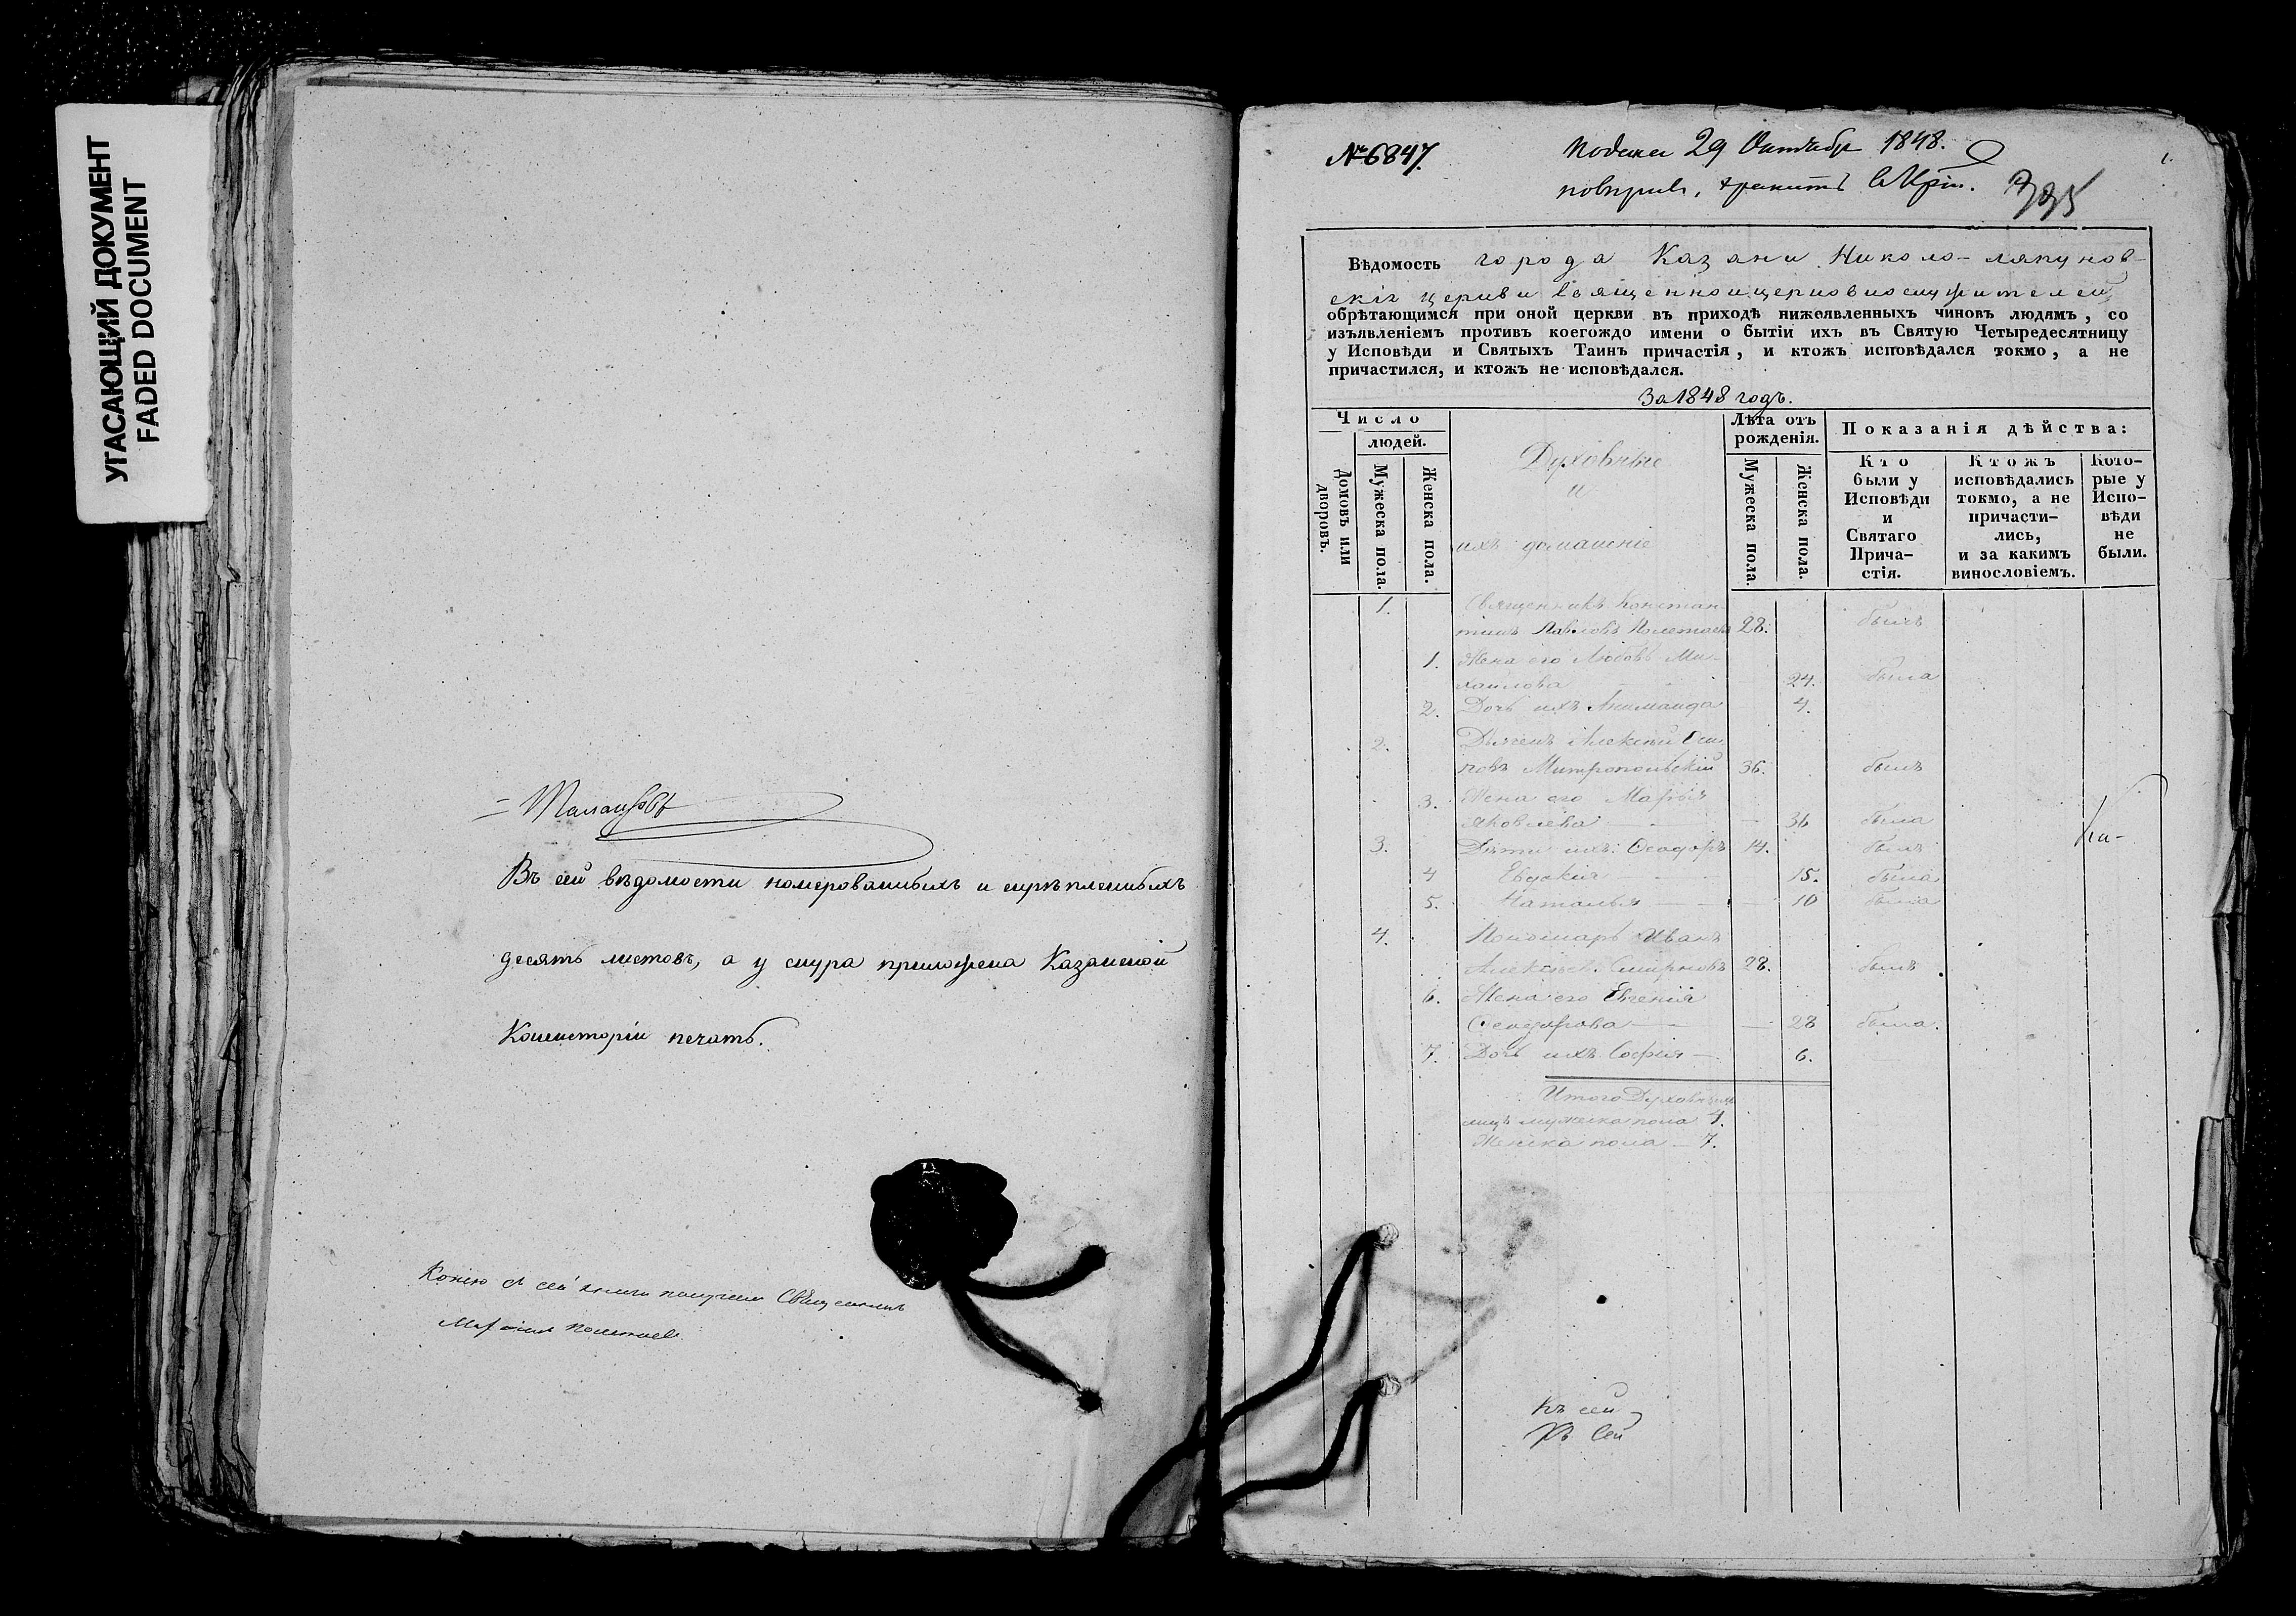 УГАСАЮЩИЙ ДОКУМЕНТ
FADED DOCUMENT
Въ сей вѣдомости номерованныхъ и скрѣпленныхъ
десять листовъ, а у снура приложена Казанской
Консисторіи печать.
Копію съ сей книги получилъ Священникъ
№ 6847.
Подана 29 Октября 1848.
395
Вѣдомость города Казани Николо-ляпунов-
скія церкви священноицерковнослужителей,
обрѣтающимся при оной церкви въ приходѣ нижеявленныхъ чиновъ людямъ, со
изъявленіемъ противъ коегождо имени о бытіи ихъ въ Святую Четыредесятницу
у Исповѣди и Святыхъ Таинъ причастія, и ктожъ исповѣдался токмо, а не
причастился, и ктожъ не исповѣдался.
За 1848 годъ.
Число
людей.
Домовъ или дворовъ.
Мужеска пола.
Женска пола.
Духовные
и
ихъ домашніе
Лѣта отъ
рожденія.
Мужеска пола.
Женска пола.
Показанія дѣйства:
Кто
были у
Исповѣди
и
Святаго
Прича-
стія.
Ктожъ
исповѣдались
токмо, а не
причасти-
лись,
и за какимъ
винословіемъ.
Кото-
рые у
Испо-
вѣди
не
были.
1. Священникъ Констан-
тинъ Павловъ 28. былъ
1. Жена его Любовь Ми-
хаилова 24. была
2. Дочь ихъ 4.
2. Дьячекъ Алексѣй Оси-
повъ Митропольскій 36. былъ
3. Жена его Марья
Яковлева 36 была
3. Дѣти ихъ: Ѳеодоръ 14. былъ
4 Евдокія 15. была
5. Наталья 10 была
4. Пономарь Иванъ
Алексѣев. Смирновъ 28. былъ
6. Жена его Евгенія
Ѳеодорова 28 была.
7. Дочь ихъ Софія 6.
Итого Духовныхъ
лицъ мужеска пола 4.
Женска пола 7.
Къ сей
Къ Сей